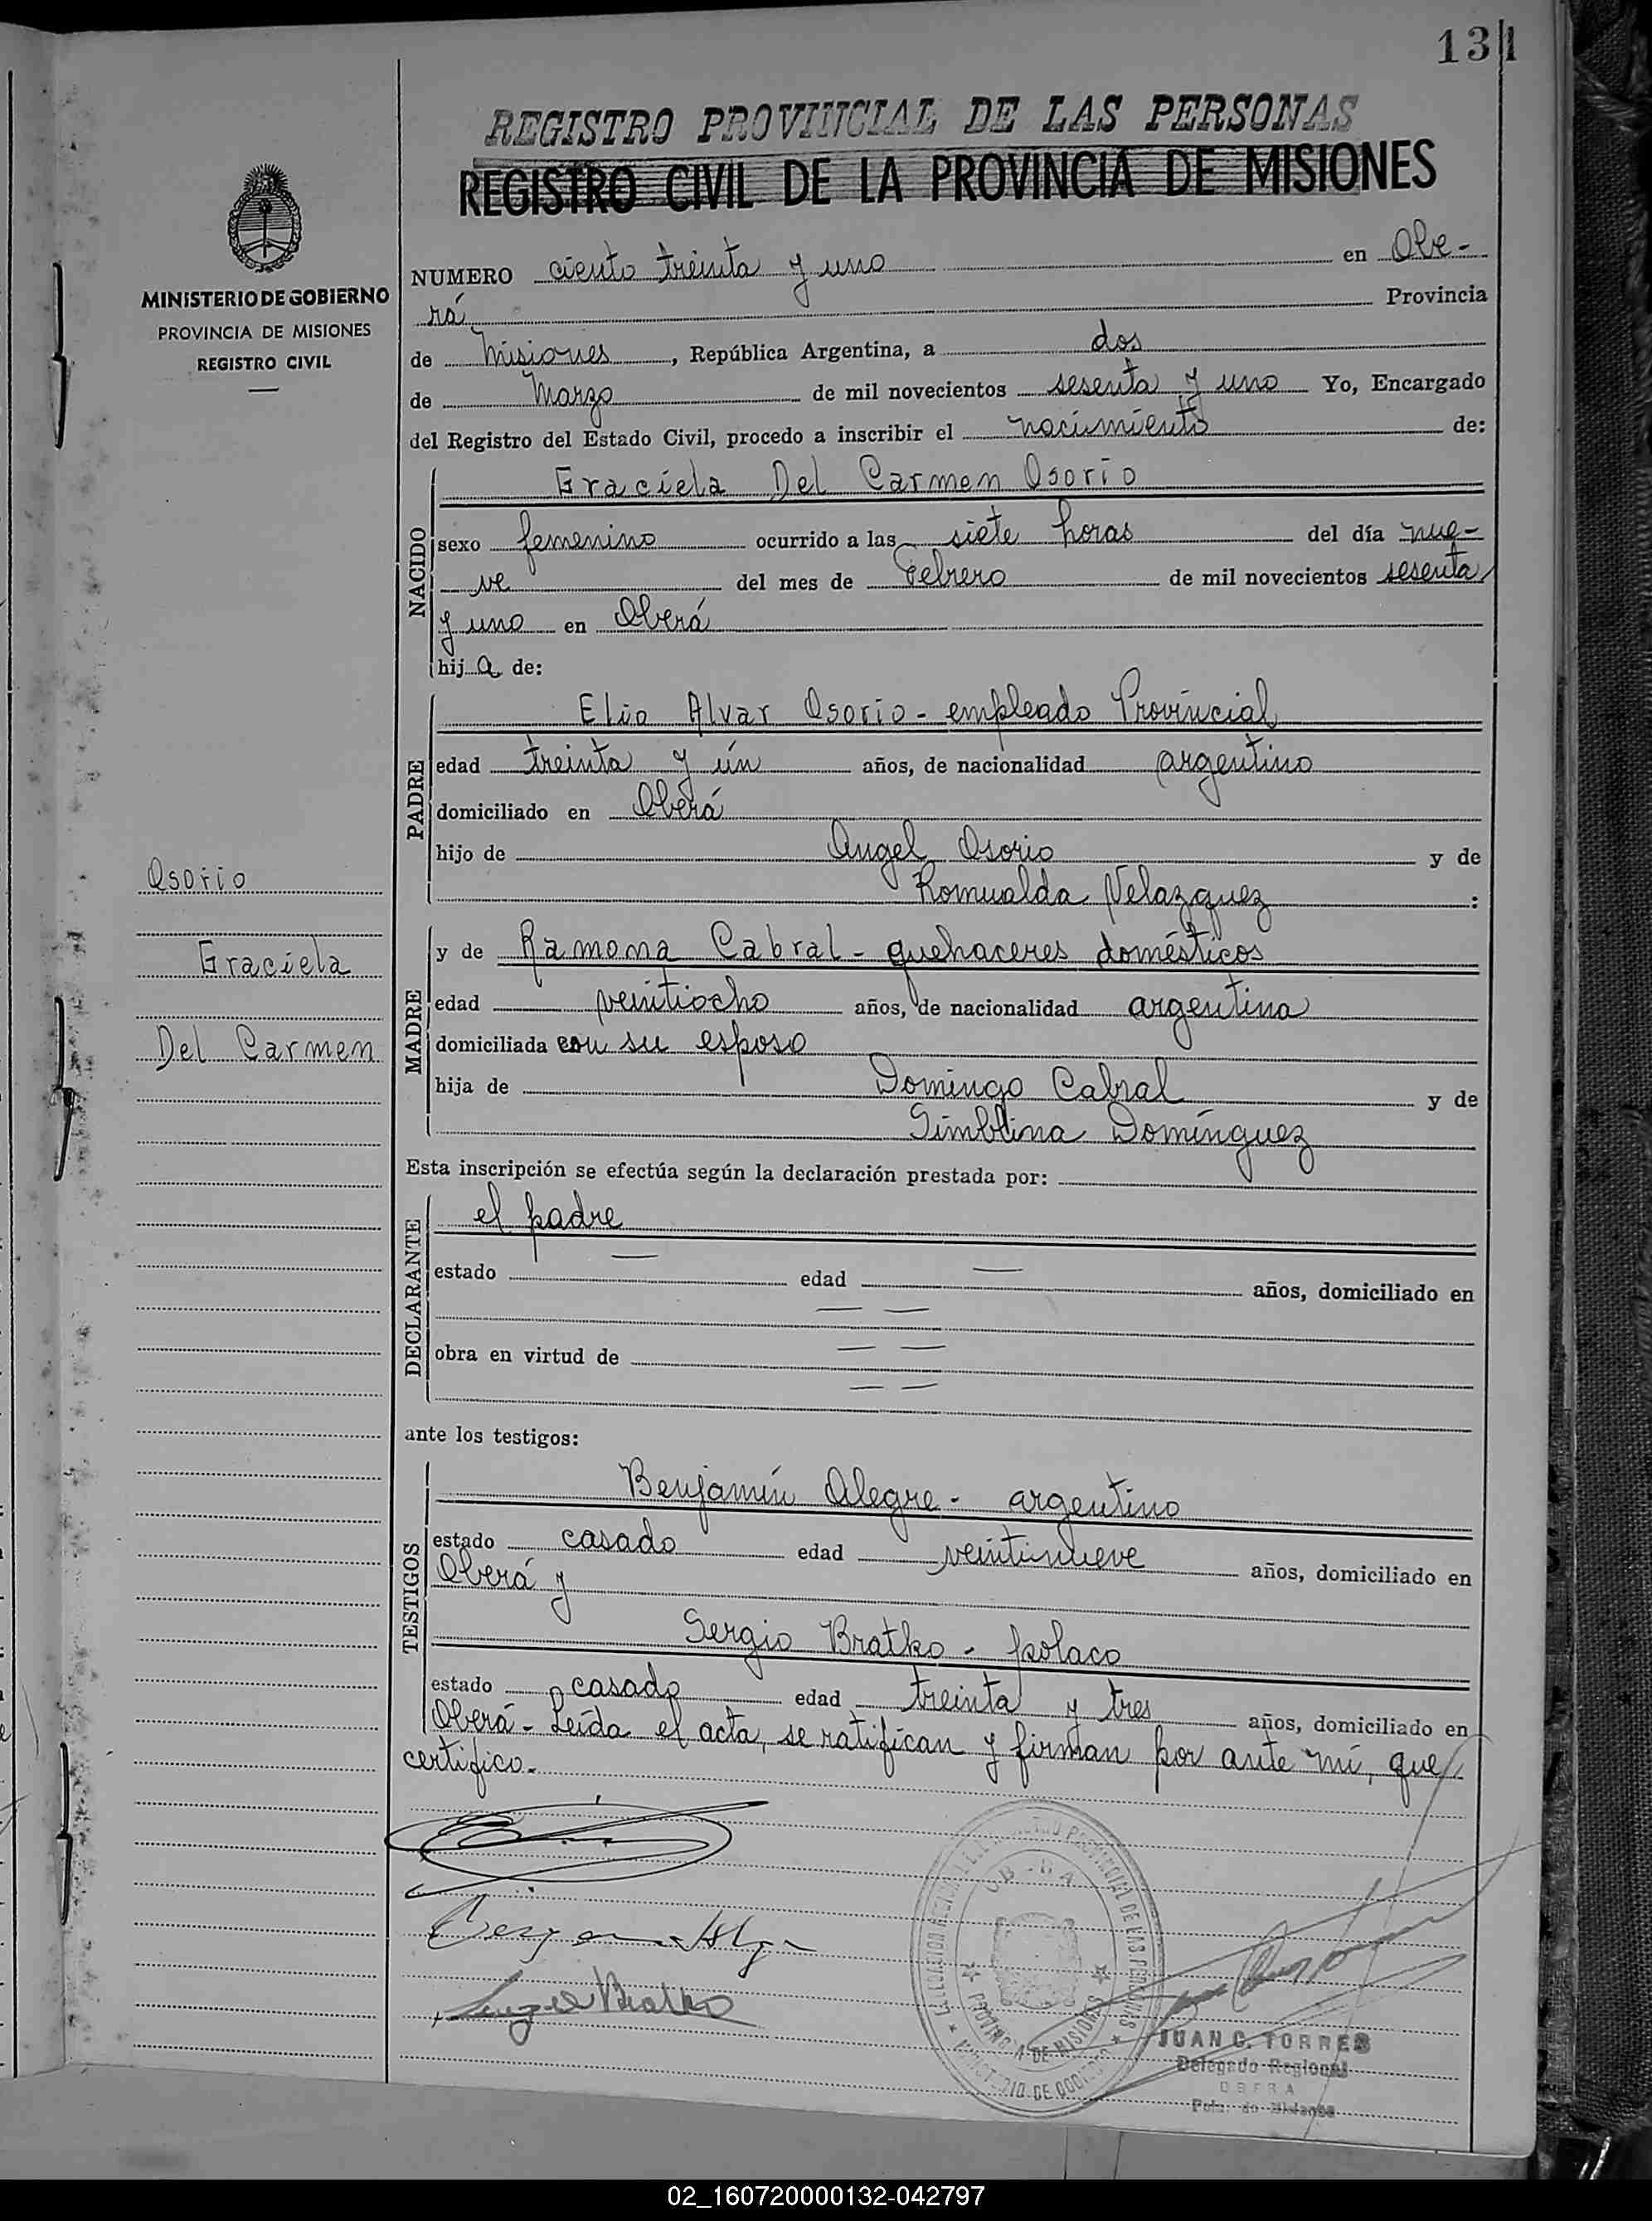 131
REGISTRO PROVINCIAL DE LAS PERSONAS
REGISTRO CIVIL DE LA PROVINCIA DE MISIONES
MINISTERIO DE GOBIERNO
PROVINCIA DE MISIONES
REGISTRO CIVIL
NUMERO ciento treinta y uno en Obe-
rá Provincia
de Misiones, República Argentina, a dos
de Marzo de mil novecientos sesenta y uno Yo, Encargado
del Registro del Estado Civil, procedo a inscribir el nacimiento de:
NACIDO
Graciela Del Carmen Osorio
sexo femenino ocurrido a las siete horas del día nue-
ve del mes de Febrero de mil novecientos sesenta
y uno en Oberá
hija de:
PADRE
Elio Alvar Osorio - empleado Provincial
edad treinta y ún años, de nacionalidad argentino
domiciliado en Oberá
hijo de Angel Osorio y de
Romualda Velazquez :
Osorio
Graciela
Del Carmen
MADRE
y de Ramona Cabral - quehaceres domésticos
edad veintiocho años, de nacionalidad argentina
domiciliada con su esposo
hija de Domingo Cabral y de
Domínguez
Esta inscripción se efectúa según la declaración prestada por:
DECLARANTE
el padre
estado — edad — años, domiciliado en
— —
obra en virtud de — —
— —
ante los testigos:
TESTIGOS
Benjamín Alegre - argentino
estado casado edad veintinueve años, domiciliado en
Oberá y
Sergio Bratko - polaco
estado casado edad treinta y tres años, domiciliado en
Oberá - Leída el acta, se ratifican y firman por ante mí, que
certifico.-
PROVINCIAL DE LAS PERSONAS
PROVINCIA DE MISIONES
JUAN C. TORRES
Delegado Regional
OBERA
02_160720000132-042797